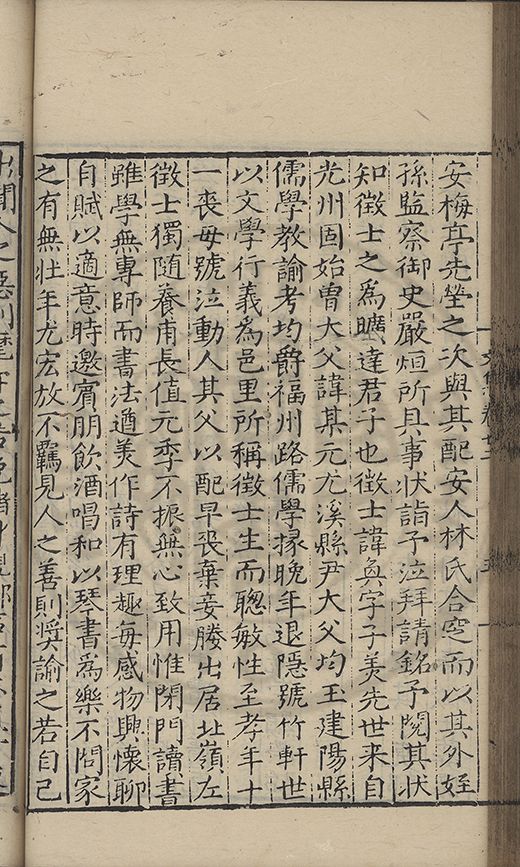 安梅亭先塋之次與其配安人林氏合窆而以其外姪
孫監察御史嚴烜所具事狀詣予泣拜請銘予閱其狀
知徵士之為曠達君子也徵士諱奐字子羡先世来自
光州固始曾大父諱某元尤溪縣尹大父均玉建陽縣
儒學教諭考均爵福州路儒學掾晚年退隱號竹軒世
以文學行義為邑里所稱徵士生而聰敏性至孝年十
一喪母號泣動人其父以配早喪棄妾媵出居北嶺左
徵士獨随養甫長值元季不振無心致用惟閉門讀書
雖學無專師而書法遒美作詩有理趣每感物興懷聊
自賦以適意時邀賓朋飲酒唱和以琴書為樂不問家
之有無壯年尤宏放不羈見人之善則奬諭之若自己